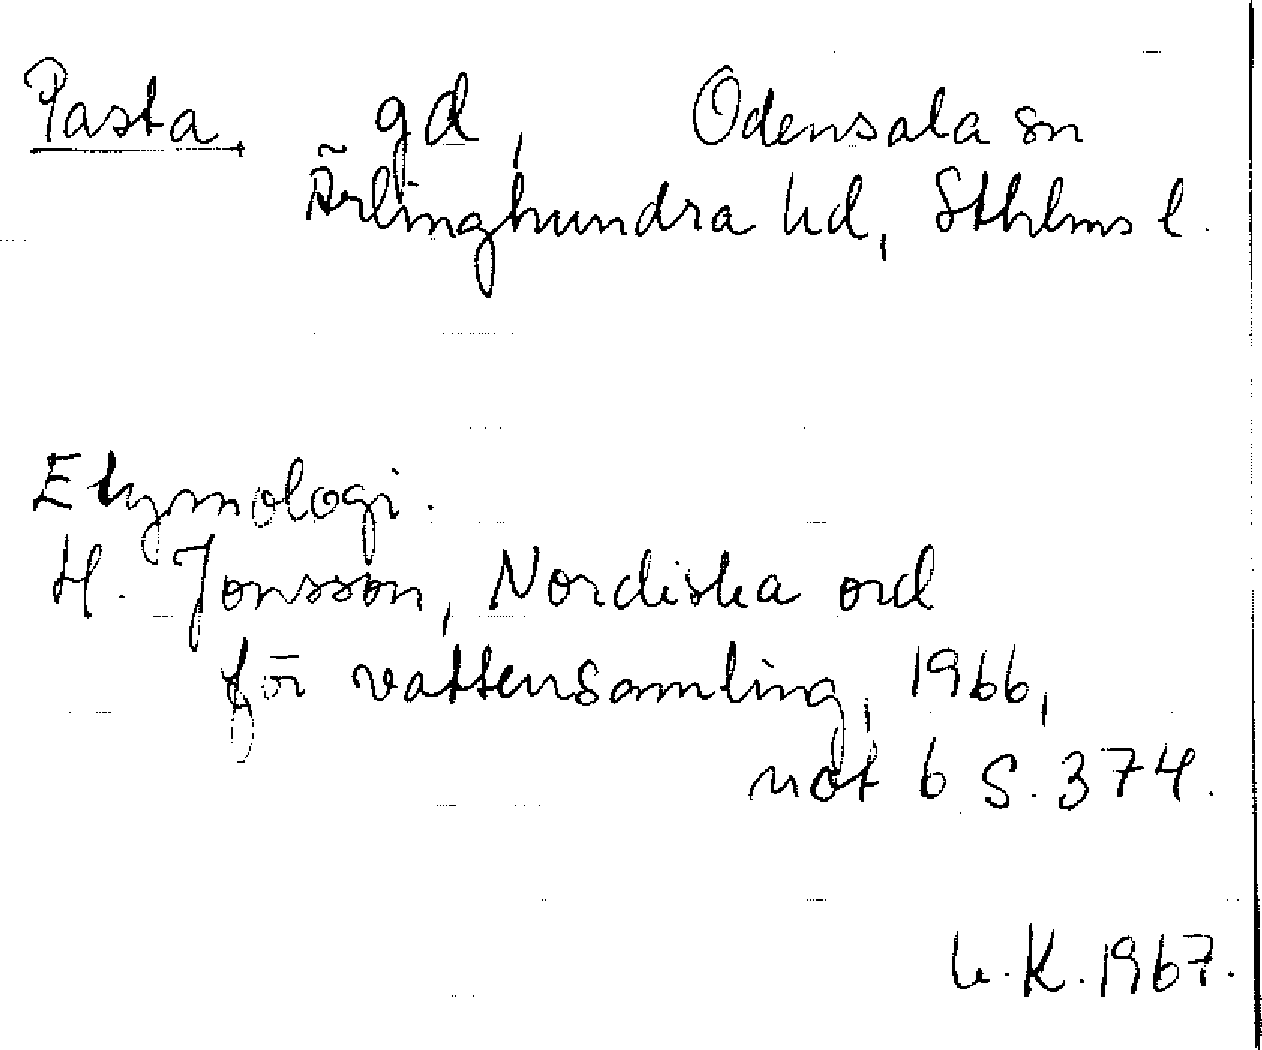 Pasta, gd, Odensala sn
Ärlinghundra hd, Sthlms l.
Etymologi.
H. Jonsson, Nordiska ord
för vattensamling, 1966,
not 6 s. 374.
K. 1967.